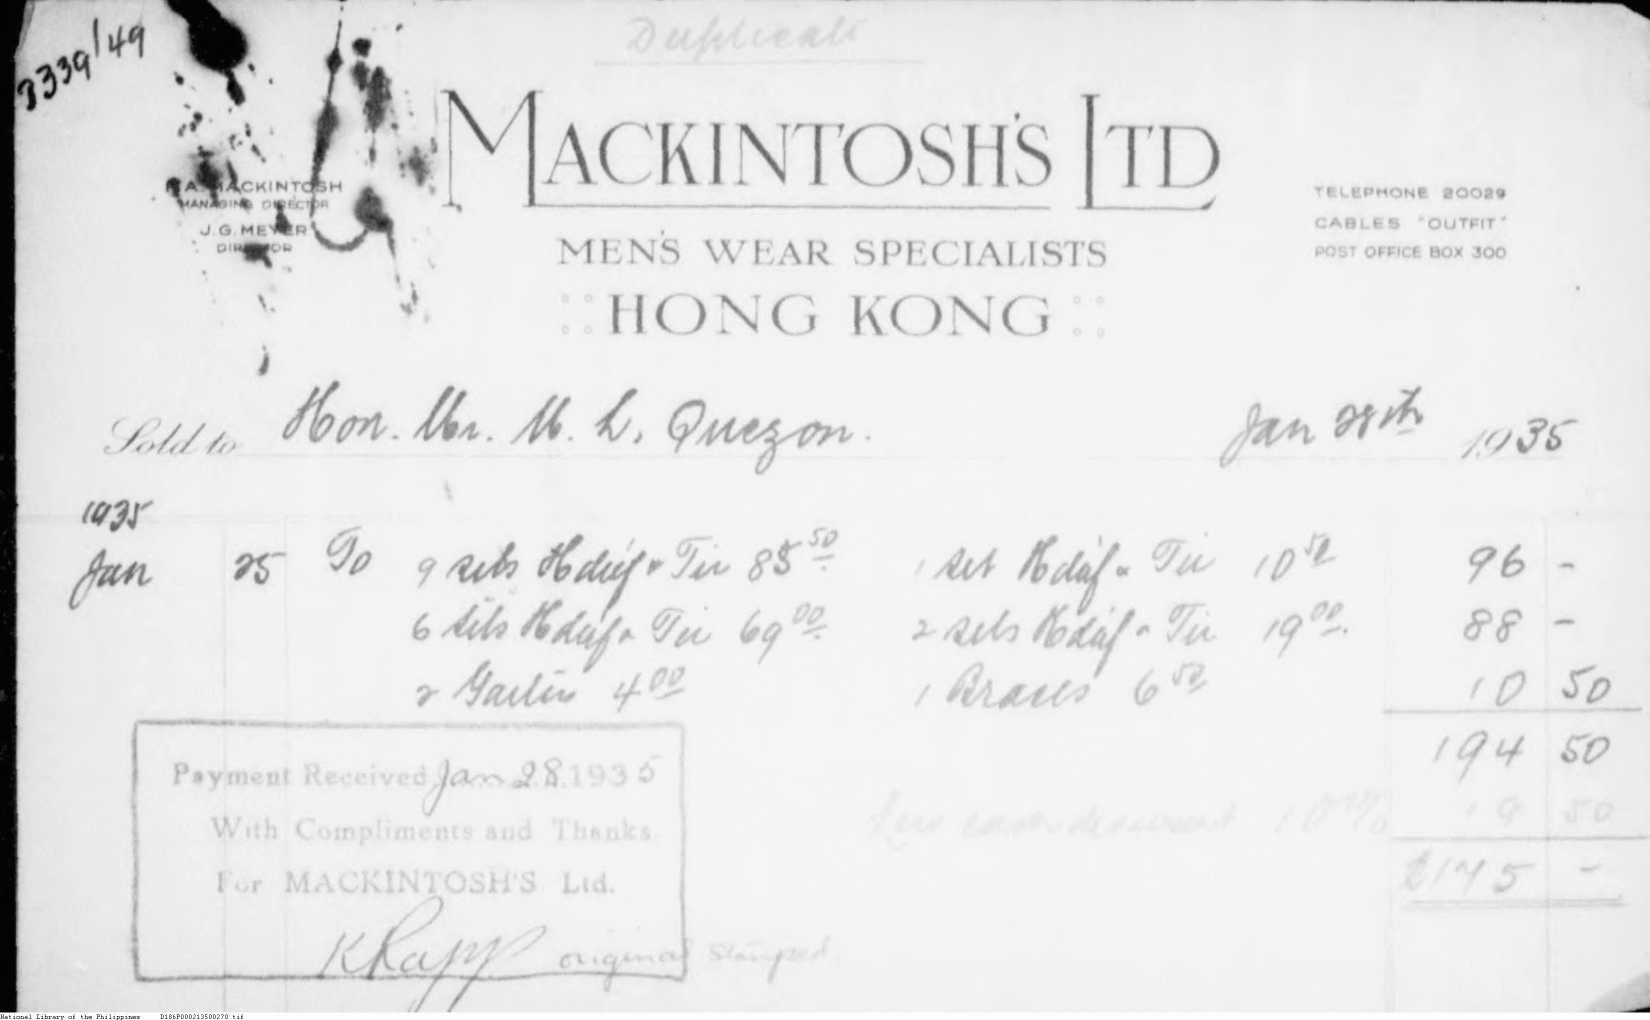 Duplicate
3339/49
MACKINTOSH'S LTD
A. MACKINTOSH
MANAGING DIRECTOR
J. G. MEYER
DIRECTOR
TELEPHONE 20029
CABLES "OUTFIT"
POST OFFICE BOX 300
MEN'S WEAR SPECIALISTS
HONG KONG
Sold to Hon. Mr. M. L. Quezon. Jan 28th 1935
1935
Jan 25 To 9 sets Hdkf & Tie 85 50 1 set Hdkf & Tie 10 50 96 -
6 sets Hdkf & Tie 69 00 2 sets Hdkf & Tie 19 00 88 -
2 4 00 1 Braces 6 50 10 50
194 50
Less cash discount 10% 19 50
$175 -
Payment Received Jan 28. 1935
With Compliments and Thanks
For MACKINTOSH'S Ltd.
original stamped
National Library of the Philippines D186P000213500270.tif